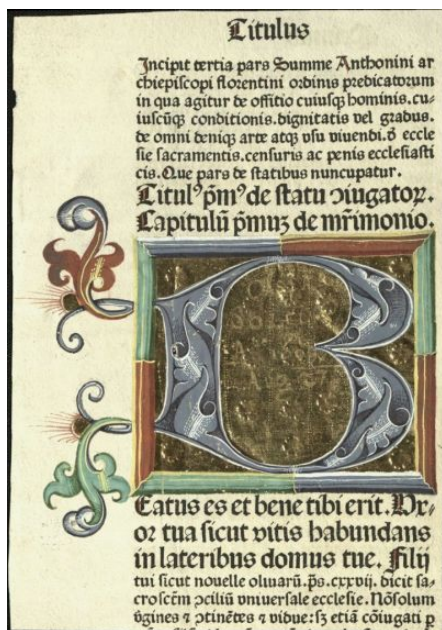 Titulus
Incipit tertia pars Summe Anthonini ar
chiepiscopi florentini ordinis predicatorum
in qua agitur de offitio cuiusqꝫ hominis. cu-
iuscūqꝫ conditionis. dignitatis vel gradus.
de omni deniqꝫ arte atqꝫ vsu viuendi. ꝺ̄ eccle
sie sacramentis. censuris ac penis ecclesiasti
cis. Que pars de statibus nuncupatur.
Titulꝰ pm̄ꝰ de statu ꝯiugatoꝝ.
Capitulū pm̄uꝫ de mr̄imonio.
B
Eatus es et bene tibi erit. Vx-
or tua sicut vitis habundans
in lateribus domus tue. Filij
tui sicut nouelle oliuarū. ps̄. cxxvij. dicit sa-
croscēm ꝯciliū vniuersale ecclesie. Nōsolum
v̄gines ⁊ ꝯtinētes ⁊ vidue: sꝫ etiā cōiugati ꝑ